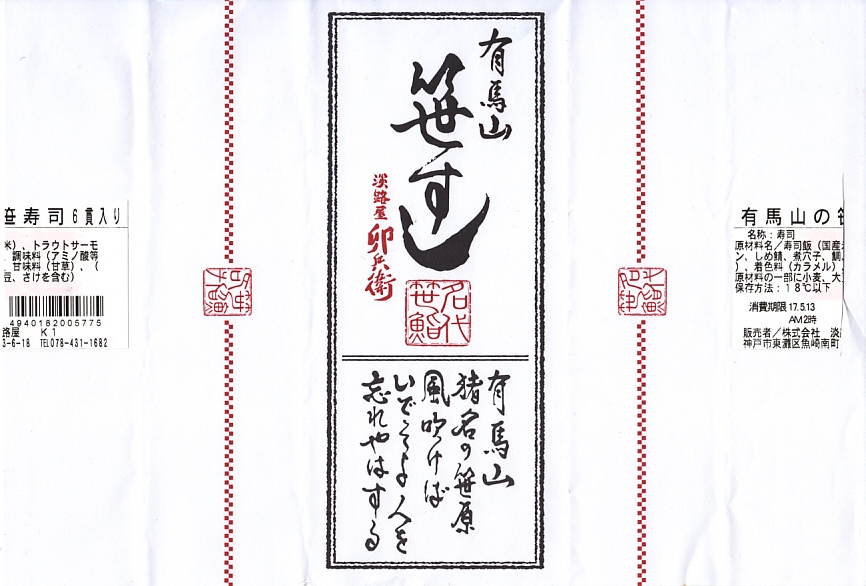 有馬山
笹すし
淡路屋
卯兵衛
名代
笹鮨
有馬山
猪名の笹原
風吹けば
いでそよ人を
忘れやはする
笹寿司 6貫入り
米)、トラウトサーモ
、調味料(アミノ酸等
、甘味料(甘草)、(
豆、さけを含む)
4940182005775
路屋 K1
3-6-18 TEL078-431-1682
有馬山の笹
名称:寿司
原材料名/寿司飯(国産
ン、しめ鯖、煮穴子、鯛、
)、着色料(カラメル)、
原材料の一部に小麦、大
保存方法:18℃以下
消費期限 17.5.13
AM2時
販売者/株式会社 淡
神戸市東灘区魚崎南町